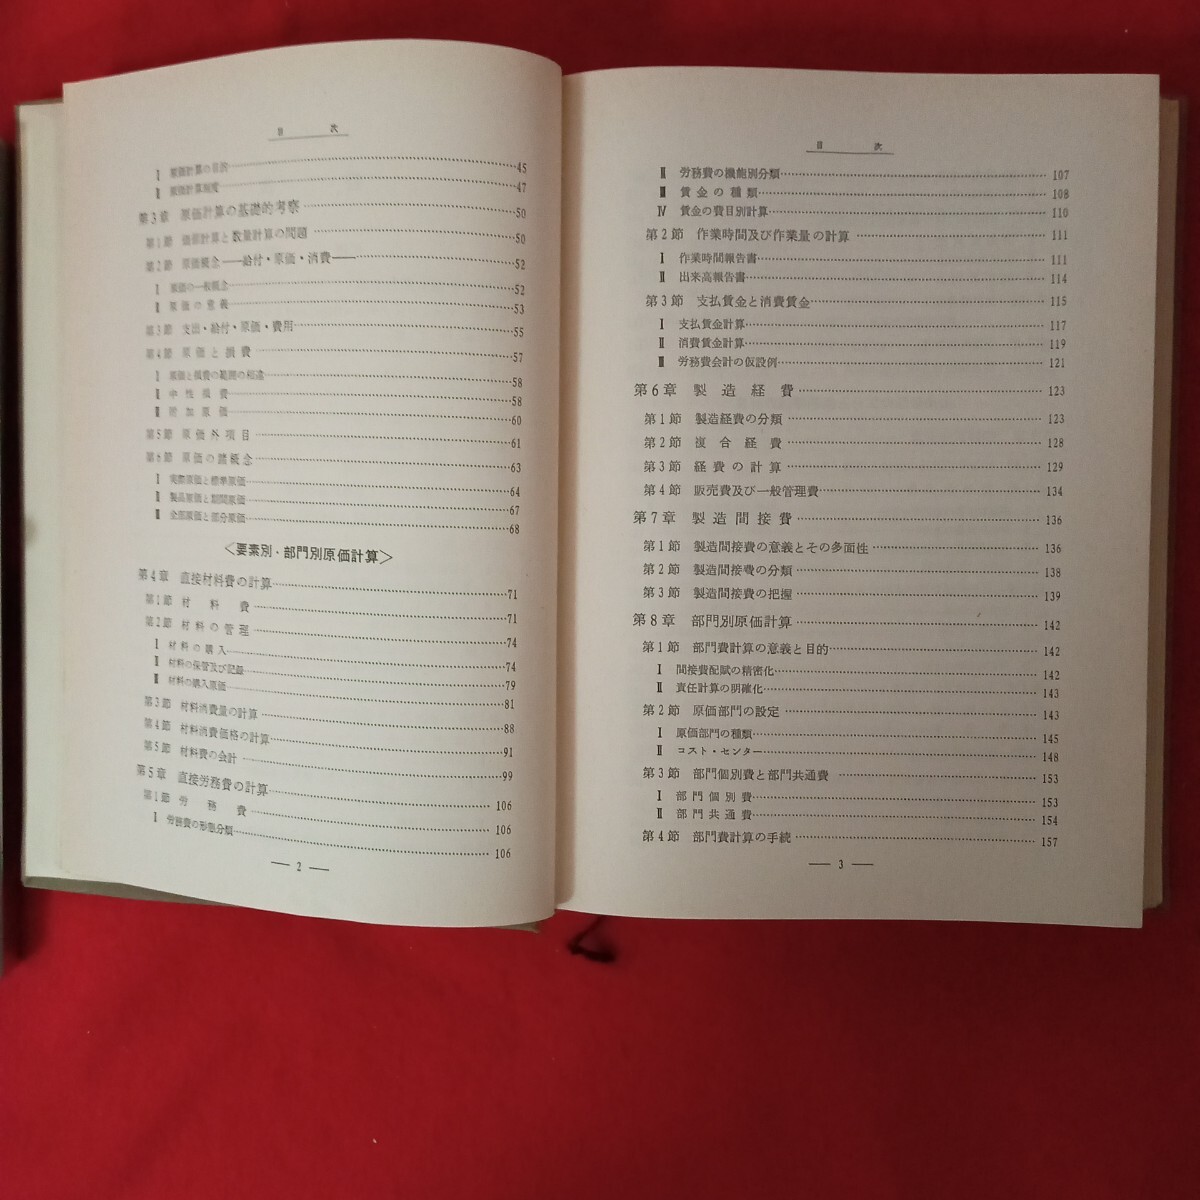 目　　次
Ⅰ 原価計算の目的 45
Ⅱ 原価計算制度 47
第3章 原価計算の基礎的考察 50
第1節 価値計算と数量計算の問題 50
第2節 原価概念――給付・原価・消費―― 52
Ⅰ 原価の一般概念 52
Ⅱ 原価の意義 53
第3節 支出・給付・原価・費用 55
第4節 原価と損費 57
Ⅰ 原価と損費の範囲の相違 58
Ⅱ 中性損費 58
Ⅲ 附加原価 60
第5節 原価外項目 61
第6節 原価の諸概念 63
Ⅰ 実際原価と標準原価 64
Ⅱ 製品原価と期間原価 67
Ⅲ 全部原価と部分原価 68
〈要素別・部門別原価計算〉
第4章 直接材料費の計算 71
第1節 材料費 71
第2節 材料の管理 74
Ⅰ 材料の購入 74
Ⅱ 材料の保管及び記録 79
Ⅲ 材料の購入原価 81
第3節 材料消費量の計算 88
第4節 材料消費価格の計算 91
第5節 材料費の会計 99
第5章 直接労務費の計算 106
第1節 労務費 106
Ⅰ 労務費の形態分類 106
― 2 ―
目　　次
Ⅱ 労務費の機能別分類 107
Ⅲ 賃金の種類 108
Ⅳ 賃金の費目別計算 110
第2節 作業時間及び作業量の計算 111
Ⅰ 作業時間報告書 111
Ⅱ 出来高報告書 114
第3節 支払賃金と消費賃金 115
Ⅰ 支払賃金計算 117
Ⅱ 消費賃金計算 119
Ⅲ 労務費会計の仮設例 121
第6章 製造経費 123
第1節 製造経費の分類 123
第2節 複合経費 128
第3節 経費の計算 129
第4節 販売費及び一般管理費 134
第7章 製造間接費 136
第1節 製造間接費の意義とその多面性 136
第2節 製造間接費の分類 138
第3節 製造間接費の把握 139
第8章 部門別原価計算 142
第1節 部門費計算の意義と目的 142
Ⅰ 間接費配賦の精密化 142
Ⅱ 責任計算の明確化 143
第2節 原価部門の設定 143
Ⅰ 原価部門の種類 145
Ⅱ コスト・センター 148
第3節 部門個別費と部門共通費 153
Ⅰ 部門個別費 153
Ⅱ 部門共通費 154
第4節 部門費計算の手続 157
― 3 ―